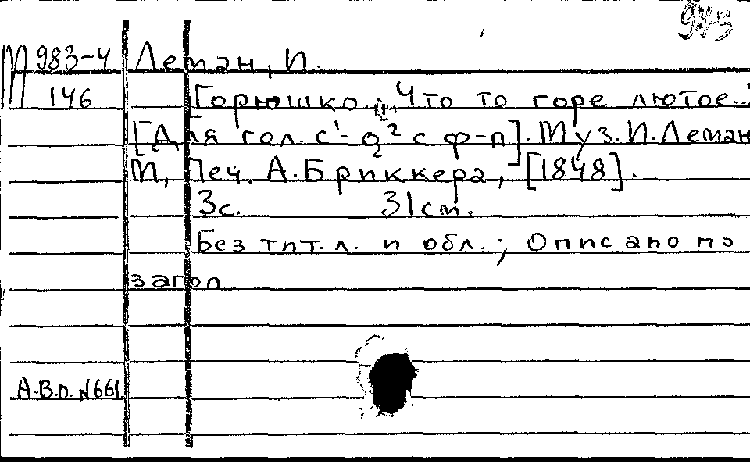 983
М 983-4 Леман, И.
146 Горюшко. „Что то горе лютое..."
[Для гол. c¹-g² с ф-п]. Муз. И. Леман
М, Печ. А. Бриккера, [1848].
3с. 31см.
Без тит. л. и обл.; Описано по
загол
А.В.п. №661